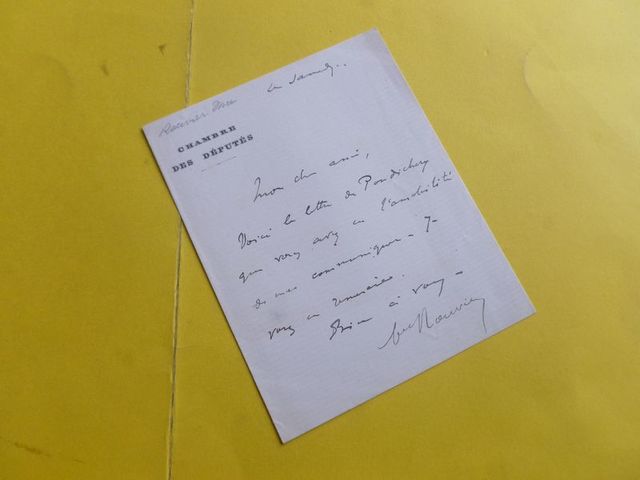 ce samedi..
CHAMBRE
DES DÉPUTÉS
Mon cher ami,
Voici la lettre de Pondichéry
que vous avez eu l'amabilité
de me communiquer. Je
vous en remercie.
Bien à vous
Rouvier